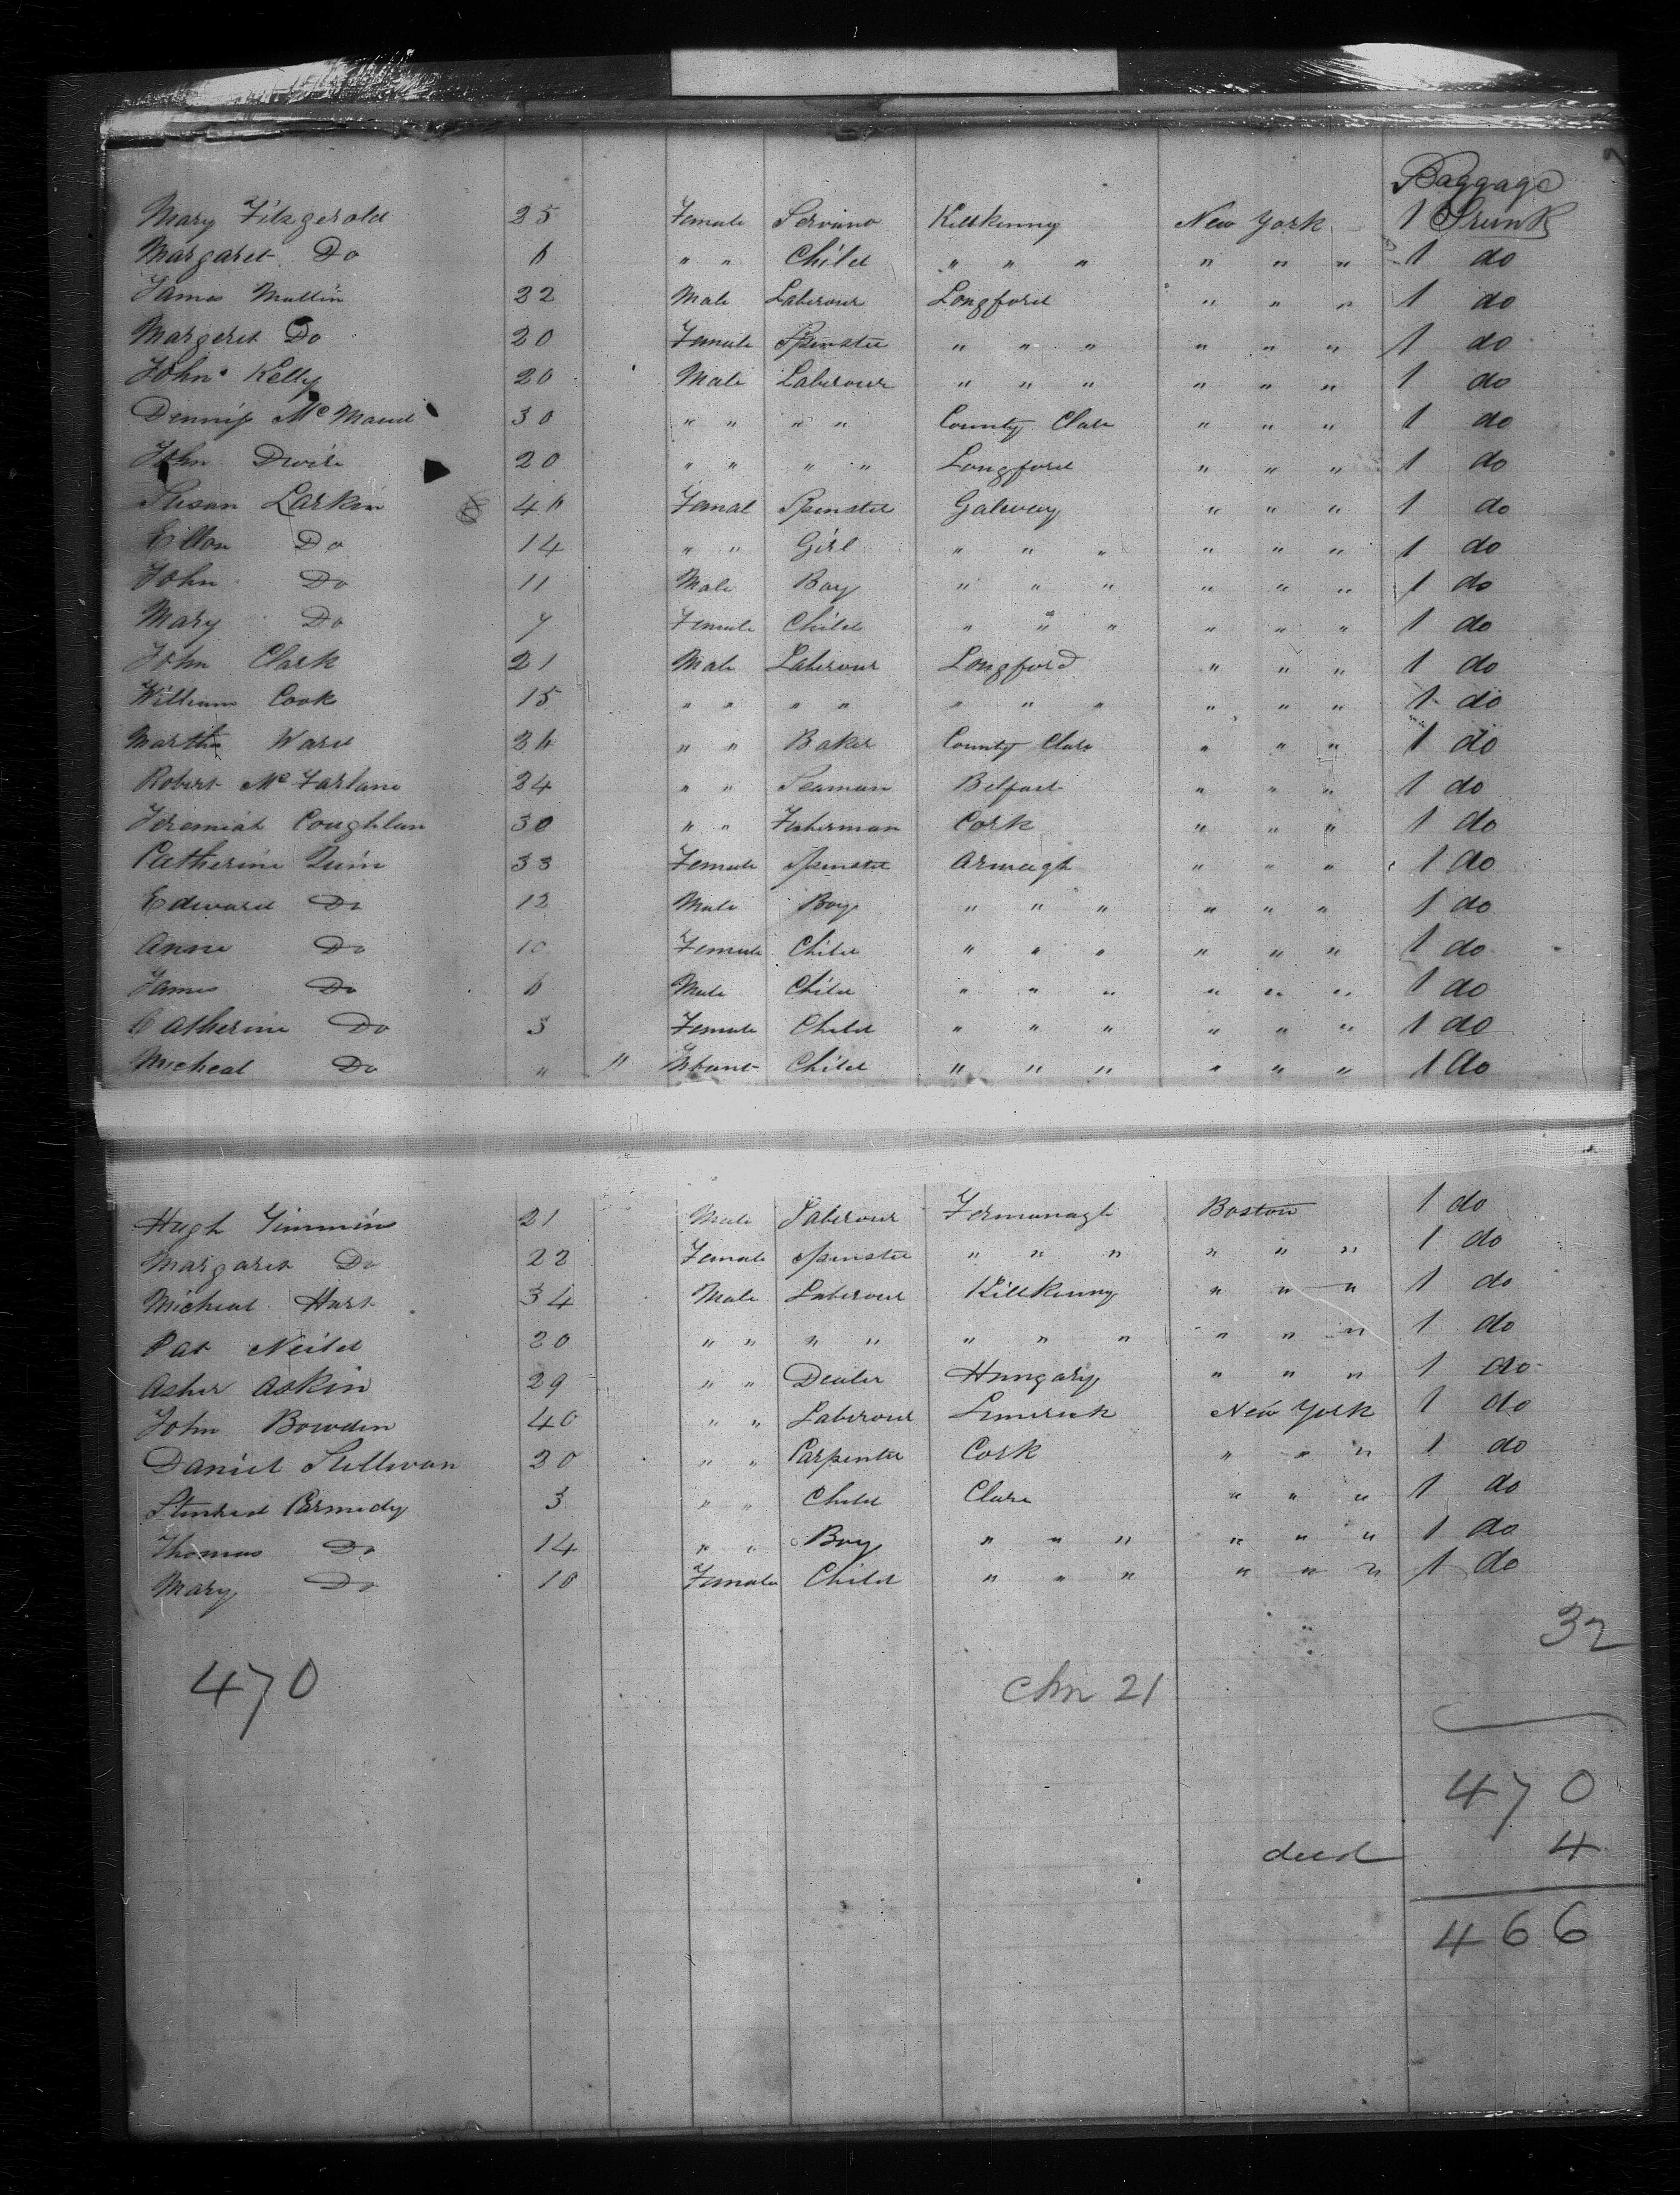 Baggage
Mary Fitzgerald 25 Female Servant Killkenny New York 1 Trunk
Margaret Do 6 " " Child " " " " " " 1 do
James Mullin 22 Male Labrour Longford " " " 1 do
Margeret Do 20 Female Spinster " " " " " " 1 do
John Kelly 20 Male Labrour " " " " " " 1 do
Dennis Mc 30 " " " " County Clare " " " 1 do
John 20 " " " " Longford " " " 1 do
Susan Larkin 46 Femal Spinster Galway " " " 1 do
Ellen Do 14 " " Girl " " " " " " 1 do
John Do 11 Male Boy " " " " " " 1 do
Mary Do 7 Female Child " " " " " " 1 do
John Clark 21 Male Labrour Longford " " " 1 do
William Cook 15 " " " " " " " " " " 1 do
Ward " " Baker County Clare " " " 1 do
Robert Mc Farlane 24 " " Seaman Belfast " " " 1 do
Jeremiah Coughlan 30 " " Fisherman Cork " " " 1 do
Catherine Quin 33 Female Spinster Armagh " " " 1 do
Edward Do 12 Male Boy " " " " " " 1 do
Anne Do 10 Female Child " " " " " " 1 do
James Do 6 Male Child " " " " " " 1 do
Catherine Do 3 Female Child " " " " " " 1 do
Micheal Do " " Infant Child " " " " " " 1 do
Hugh Timmins 21 Male Labrour Fermanagh Boston 1 do
Margaret Do 22 Female Spinster " " " " " " 1 do
Micheal Hart 34 Male Labrour Killkenny " " " 1 do
Pat 20 " " " " " " " " " " 1 do
Asher Askin 29 " " Dealer Hungary " " " 1 do
John Bowden 40 " " Labrour Limerick New York 1 do
Daniel Sullivan 20 " " Carpenter Cork " " " 1 do
3 " " Child Clare " " " 1 do
Thomas Do 14 " " Boy " " " " " " 1 do
Mary Do 10 Female Child " " " " " " 1 do
32
470 Chn 21
470
4
466